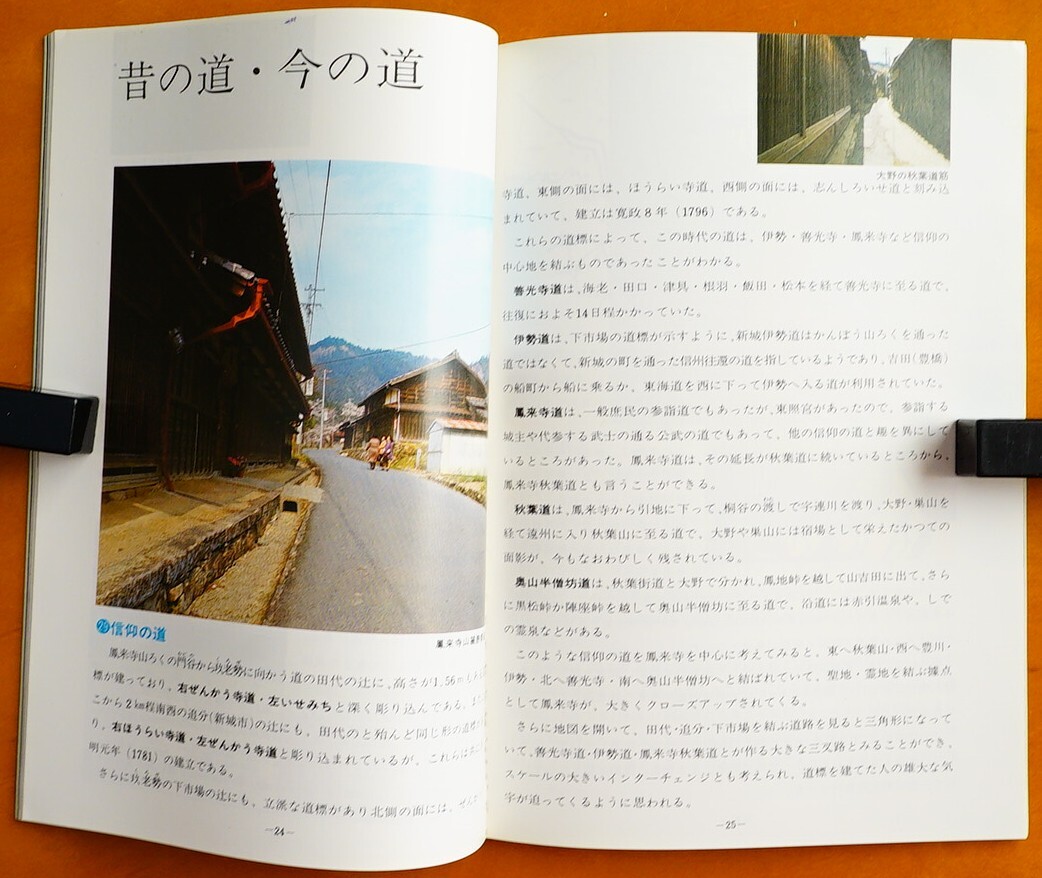 昔の道・今の道
㉕信仰の道
鳳来寺山ろくの門谷から玖老勢に向かう道の田代の辻に、高さが1.56mもある
標が建っており、右ぜんかう寺道・左いせみちと深く彫り込んである。また
こから2km程南西の追分(新城市)の辻にも、田代のと殆んど同じ形の道標
り、右ほうらい寺道・左ぜんかう寺道と彫り込まれているが、これらは
明元年(1781)の建立である。
さらに玖老勢の下市場の辻にも、立派な道標があり北側の面には、ぜん
—24—
大野の秋葉道筋
寺道、東側の面には、ほうらい寺道、西側の面には、志んしろいせ道と刻み込
まれていて、建立は寛政8年(1796)である。
これらの道標によって、この時代の道は、伊勢・善光寺・鳳来寺など信仰の
中心地を結ぶものであったことがわかる。
善光寺道は、海老・田口・津具・根羽・飯田・松本を経て善光寺に至る道で、
往復におよそ14日程かかっていた。
伊勢道は、下市場の道標が示すように、新城伊勢道はかんぼう山ろくを通った
道ではなくて、新城の町を通った信州往還の道を指しているようであり、吉田(豊橋)
の船町から船に乗るか、東海道を西に下って伊勢へ入る道が利用されていた。
鳳来寺道は、一般庶民の参詣道でもあったが、東照宮があったので、参詣する
城主や代参する武士の通る公武の道でもあって、他の信仰の道と趣を異にして
いるところがあった。鳳来寺道は、その延長が秋葉道に続いているところから、
鳳来寺秋葉道とも言うことができる。
秋葉道は、鳳来寺から引地に下って、桐谷の渡しで宇連川を渡り、大野・巣山を
経て遠州に入り秋葉山に至る道で、大野や巣山には宿場として栄えたかつての
面影が、今もなおわびしく残されている。
奥山半僧坊道は、秋葉街道と大野で分かれ、鳳地峠を越して山吉田に出て、さら
に黒松峠か陣座峠を越して奥山半僧坊に至る道で、沿道には赤引温泉や、しで
の霊泉などがある。
このような信仰の道を鳳来寺を中心に考えてみると、東へ秋葉山・西へ豊川・
伊勢・北へ善光寺・南へ奥山半僧坊へと結ばれていて、聖地・霊地を結ぶ據点
として鳳来寺が、大きくクローズアップされてくる。
さらに地図を開いて、田代・追分・下市場を結ぶ道路を見ると三角形になって
いて、善光寺道・伊勢道・鳳来寺秋葉道とが作る大きな三叉路とみることができ、
スケールの大きいインターチェンジとも考えられ、道標を建てた人の雄大な気
宇が迫ってくるように思われる。
—25—